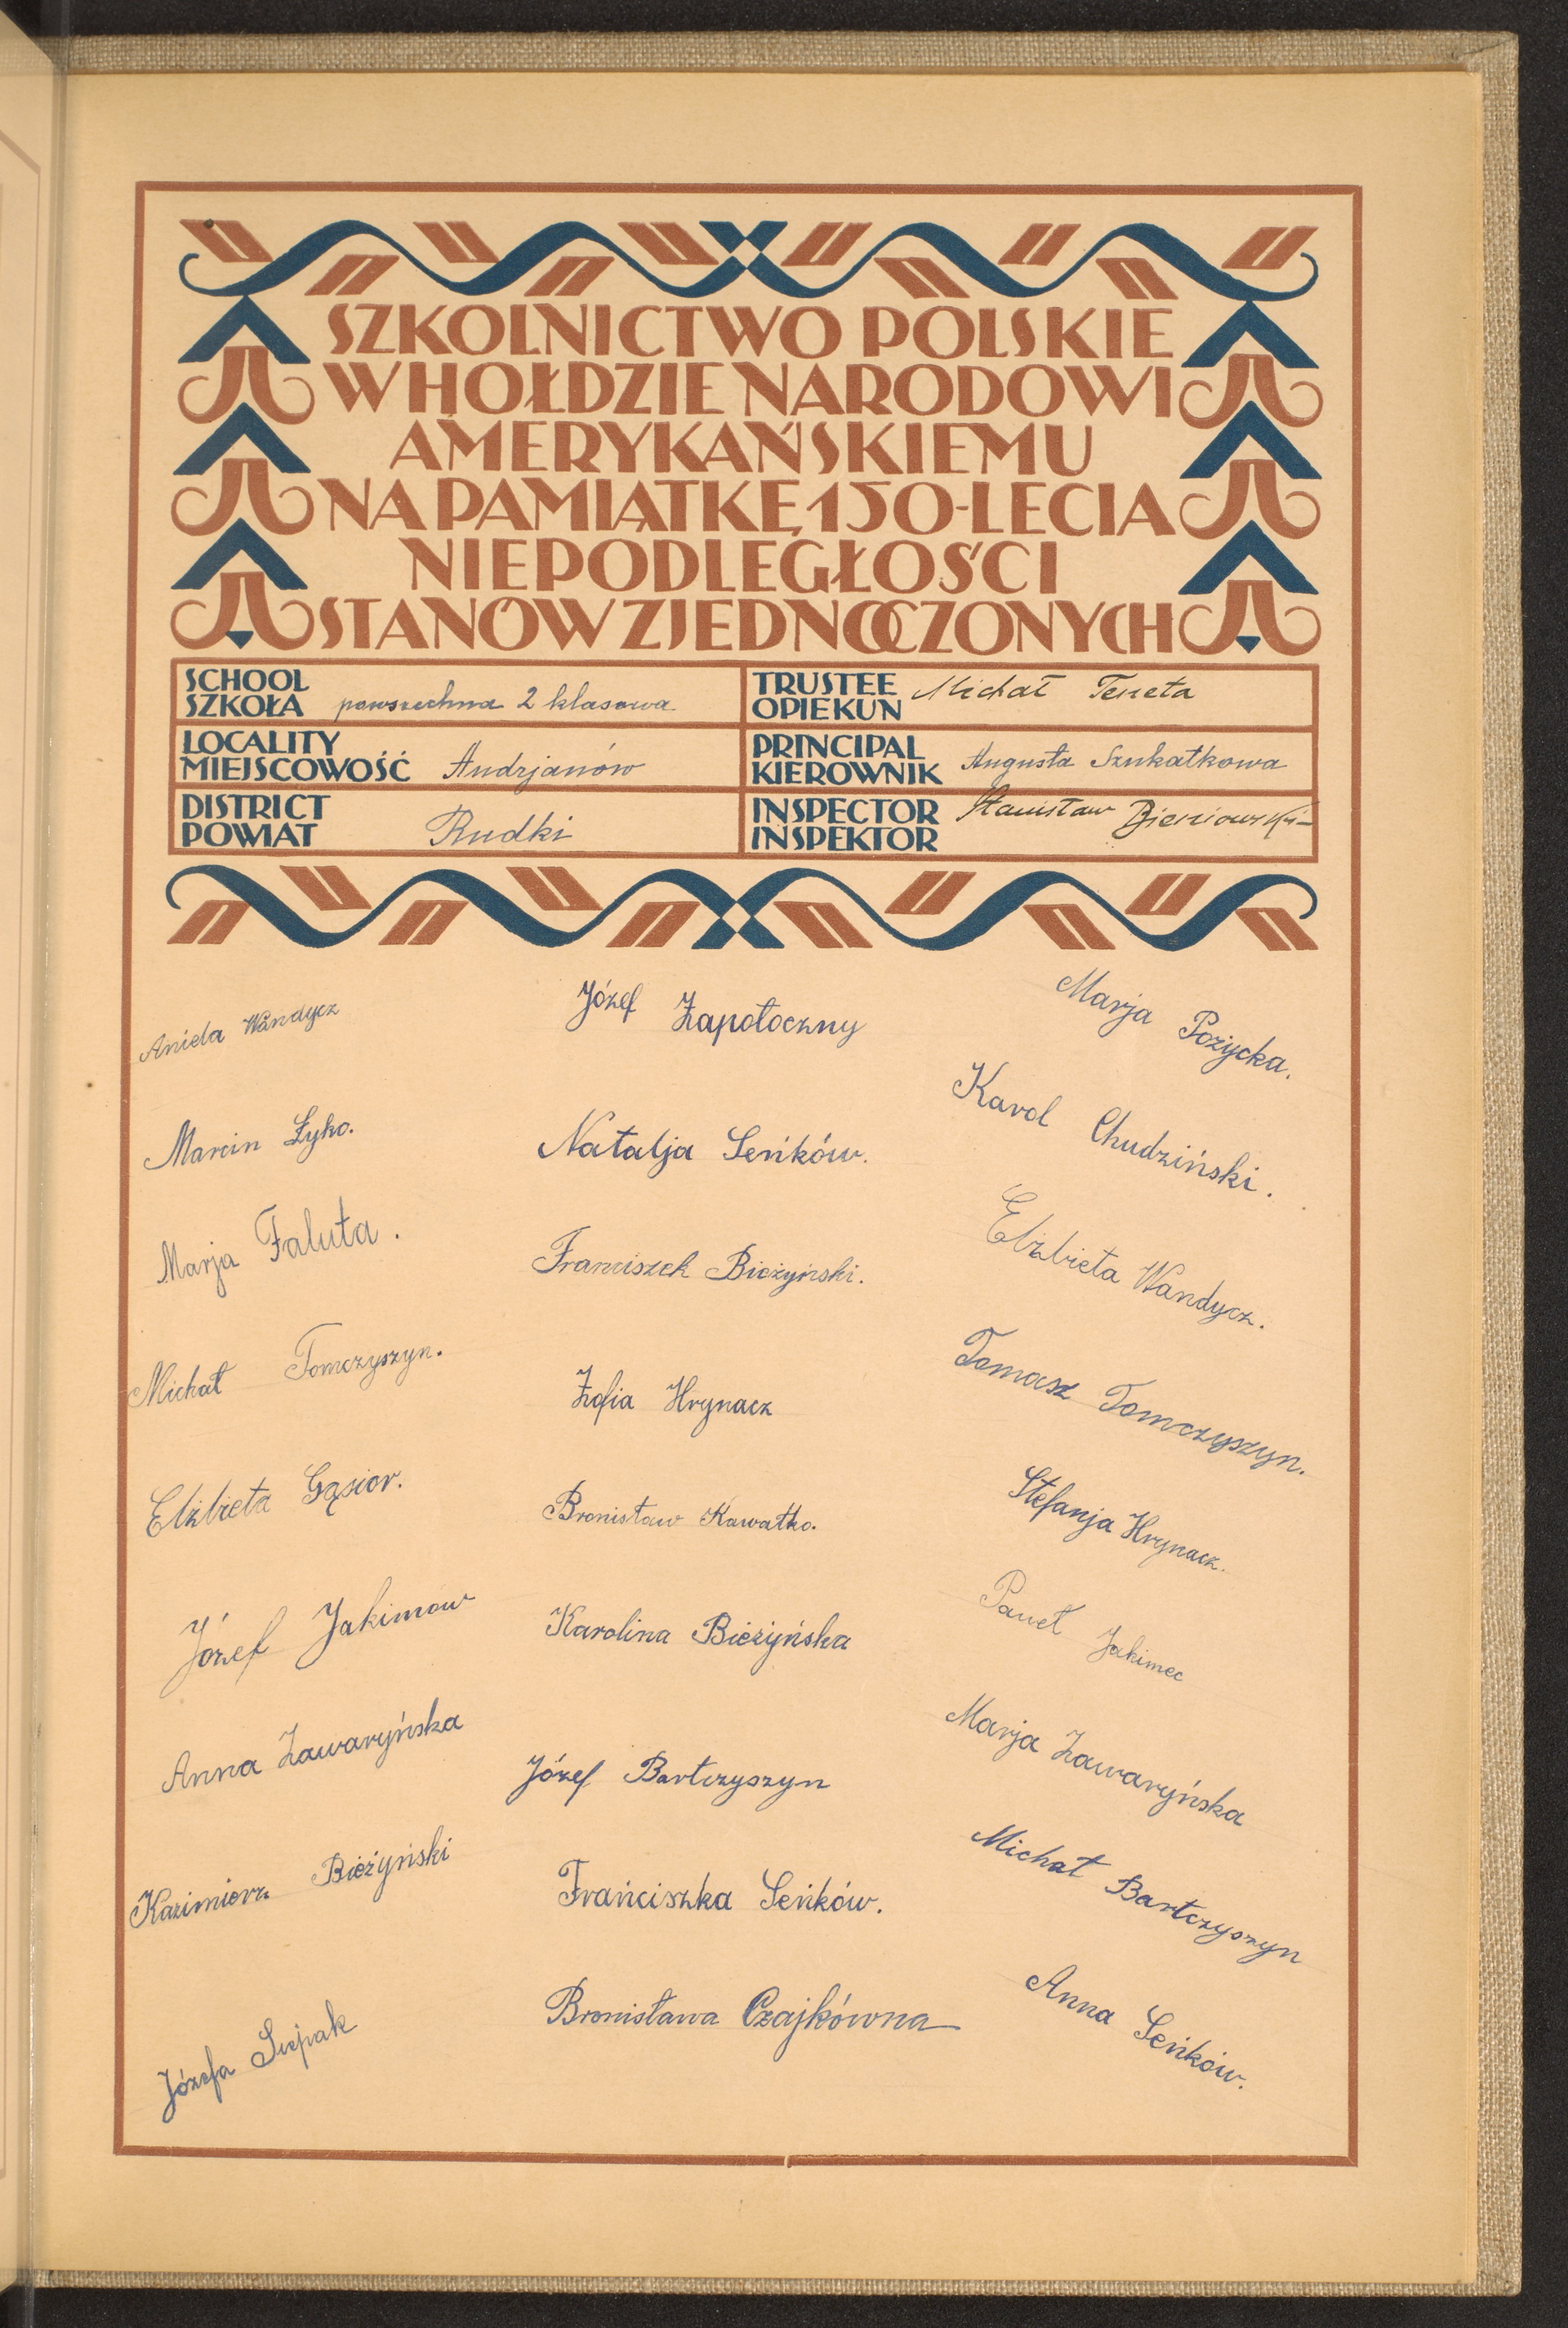 SZKOLNICTWO POLSKIE
W HOŁDZIE NARODOWI
AMERYKAŃSKIEMU
NA PAMIĄTKĘ 150-LECIA
NIEPODLEGŁOŚCI
STANÓW ZJEDNOCZONYCH
SCHOOL
SZKOŁA powszechna 2 klasowa
TRUSTEE
OPIEKUN Michał Teneta
LOCALITY
MIEJSCOWOŚĆ Andrjanów
PRINCIPAL
KIEROWNIK Augusta Szukatkowa
DISTRICT
POWIAT Rudki
INSPECTOR
INSPEKTOR Stanisław Bieniowski
Aniela Wandycz
Marcin Łyko.
Marja Faluta.
Michał Tomczyszyn.
Elżbieta Gąsior.
Józef Jakimow
Anna Zawaryńska
Kazimierz Bieżyński
Józefa
Józef Zapotoczny
Natalja Seńków.
Franciszek Bieżyński.
Zofia Hrynacz
Bronisław Kawałko.
Karolina Bieżyńska
Józef Bartczyszyn
Frańciszka Seńków.
Bronisława Czajkówna
Marja Pożycka.
Karol Chudziński.
Elżbieta Wandycz.
Tomasz Tomczyszyn.
Stefanja Hrynacz.
Paweł Jakimec
Marja Zawaryńska
Michał Bartczyszyn
Anna Seńków.